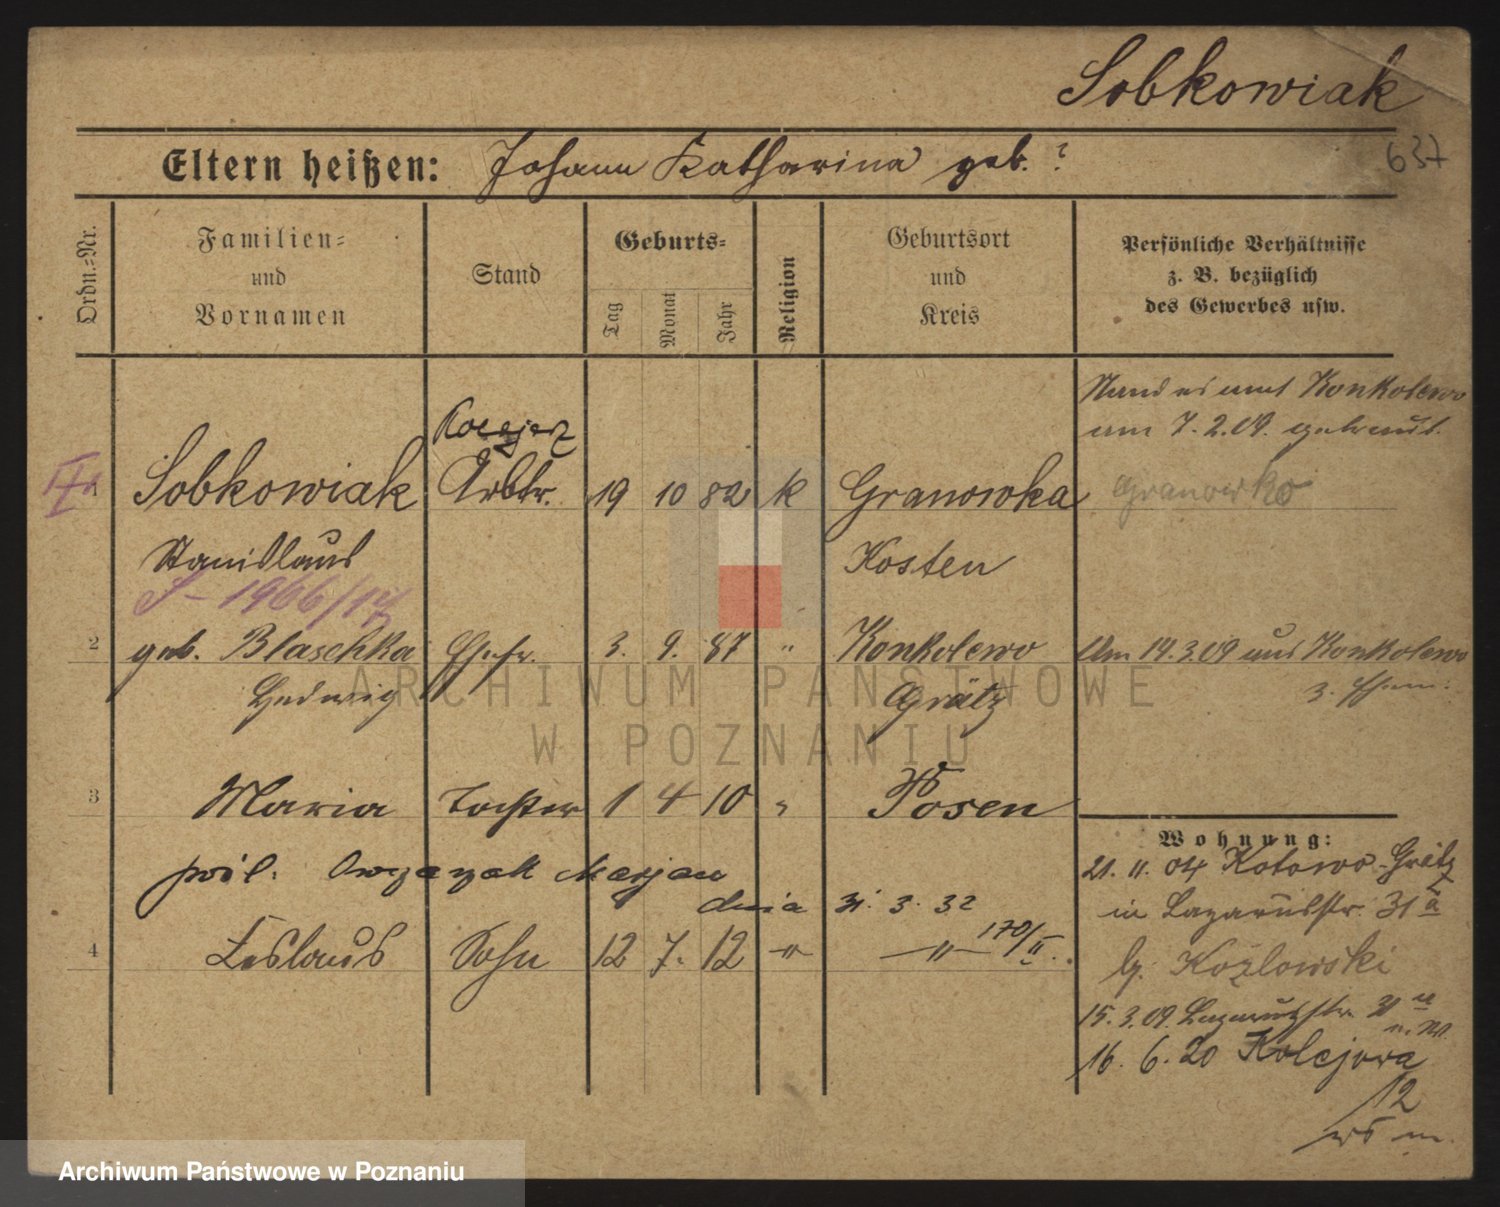 Sobkowiak
637
Eltern heißen: Johann Katharina geb. ?
Ordn.-Nr.
Familien-
und
Vornamen
Stand
Geburts-
Tag
Monat
Jahr
Religion
Geburtsort
und
Kreis
Persönliche Verhältnisse
z. B. bezüglich
des Gewerbes usw.
Standesamt Konkolewo
am 7.2.09. getraut.
1 Sobkowiak Arbtr. 19 10 82 k Granowka Granowko
Stanislaus Kosten
S-1966/
2 geb. Blaschka Ehefr. 3. 9. 87 " Konkolewo Am 14.3.09 aus Konkolewo
Hedwig Grätz z. Ehem.
3 Maria Tochter 1 4 10 " Posen
Marjan
dnia 31. 3. 32
4 Zeslaus Sohn 12 7. 12 -"- -"- 170/II.
Wohnung:
21. 11. 04 Kotowo-Grätz
in Lazarusstr. 31a
b. Kozlowski
15.3.09. Lazarusstr. 31a
16. 6. 20 Kolejowa
12
ARCHIWUM PAŃSTWOWE
W POZNANIU
Archiwum Państwowe w Poznaniu